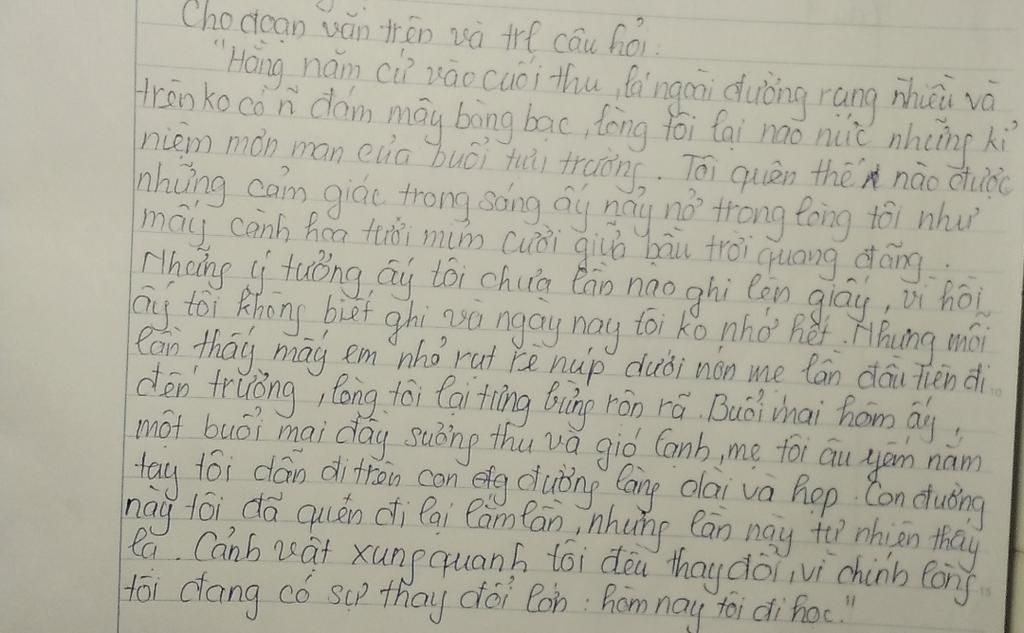 Cho đoạn văn trên và trl câu hỏi:
"Hằng năm cứ vào cuối thu, lá ngoài đường rụng nhiều và
trên ko có ~n đám mây bàng bạc, lòng tôi lại nao nức những kỉ
niệm mơn man của buổi tựu trường. Tôi quên thế nào được
những cảm giác trong sáng ấy nảy nở trong lòng tôi như
mấy cành hoa tươi mỉm cười giữa bầu trời quang đãng.
Những ý tưởng ấy tôi chưa lần nào ghi lên giấy, vì hồi
ấy tôi không biết ghi và ngày nay tôi ko nhớ hết. Nhưng mỗi
lần thấy mấy em nhỏ rụt rè núp dưới nón mẹ lần đầu tiên đi
đến trường, lòng tôi lại tưng bừng rộn rã. Buổi mai hôm ấy,
một buổi mai đầy sương thu và gió lạnh, mẹ tôi âu yếm nắm
tay tôi dẫn đi trên con đường làng dài và hẹp. Con đường
này tôi đã quen đi lại lắm lần, nhưng lần này tự nhiên thấy
lạ. Cảnh vật xung quanh tôi đều thay đổi, vì chính lòng
tôi đang có sự thay đổi lớn: hôm nay tôi đi học."